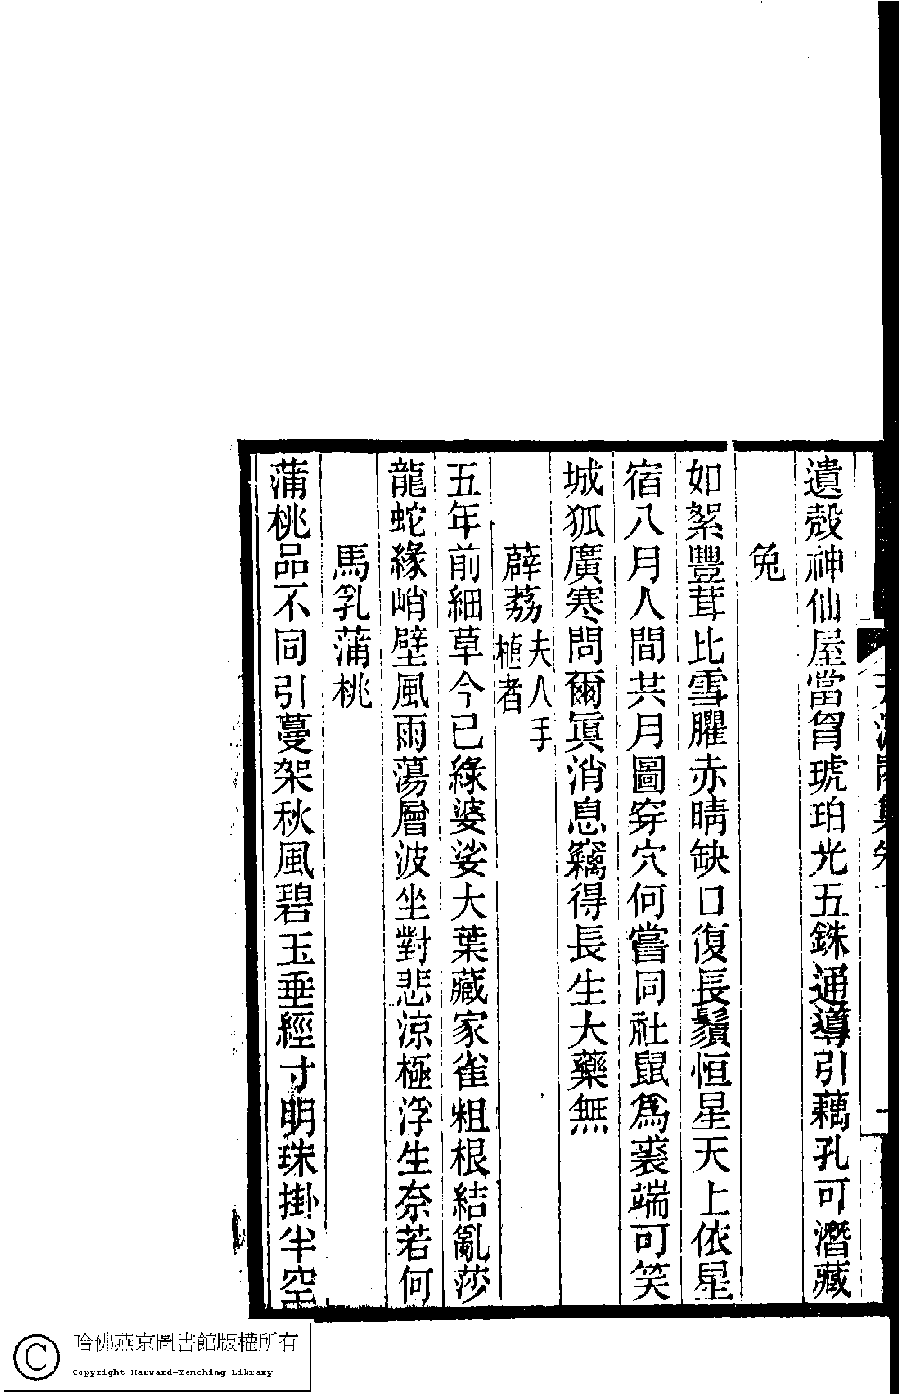 遺殼神仙屋當胷琥珀光五銖通導引藕孔可潛藏
兔
如絮豐茸比雪臞赤睛缺口復長鬚恒星天上依星
宿八月人間共月圖穿穴何嘗同社鼠爲裘端可笑
城狐廣寒問爾眞消息竊得長生大藥無
薜荔夫人手
植者
五年前細草今已緣婆娑大葉藏家雀粗根結亂莎
龍蛇緣峭壁風雨蕩層波坐對悲涼極浮生奈若何
馬乳蒲桃
蒲桃品不同引蔓架秋風碧玉垂經寸明珠掛半空
哈佛燕京圖書館版權所有
Copyright Harvard-Yenching Library